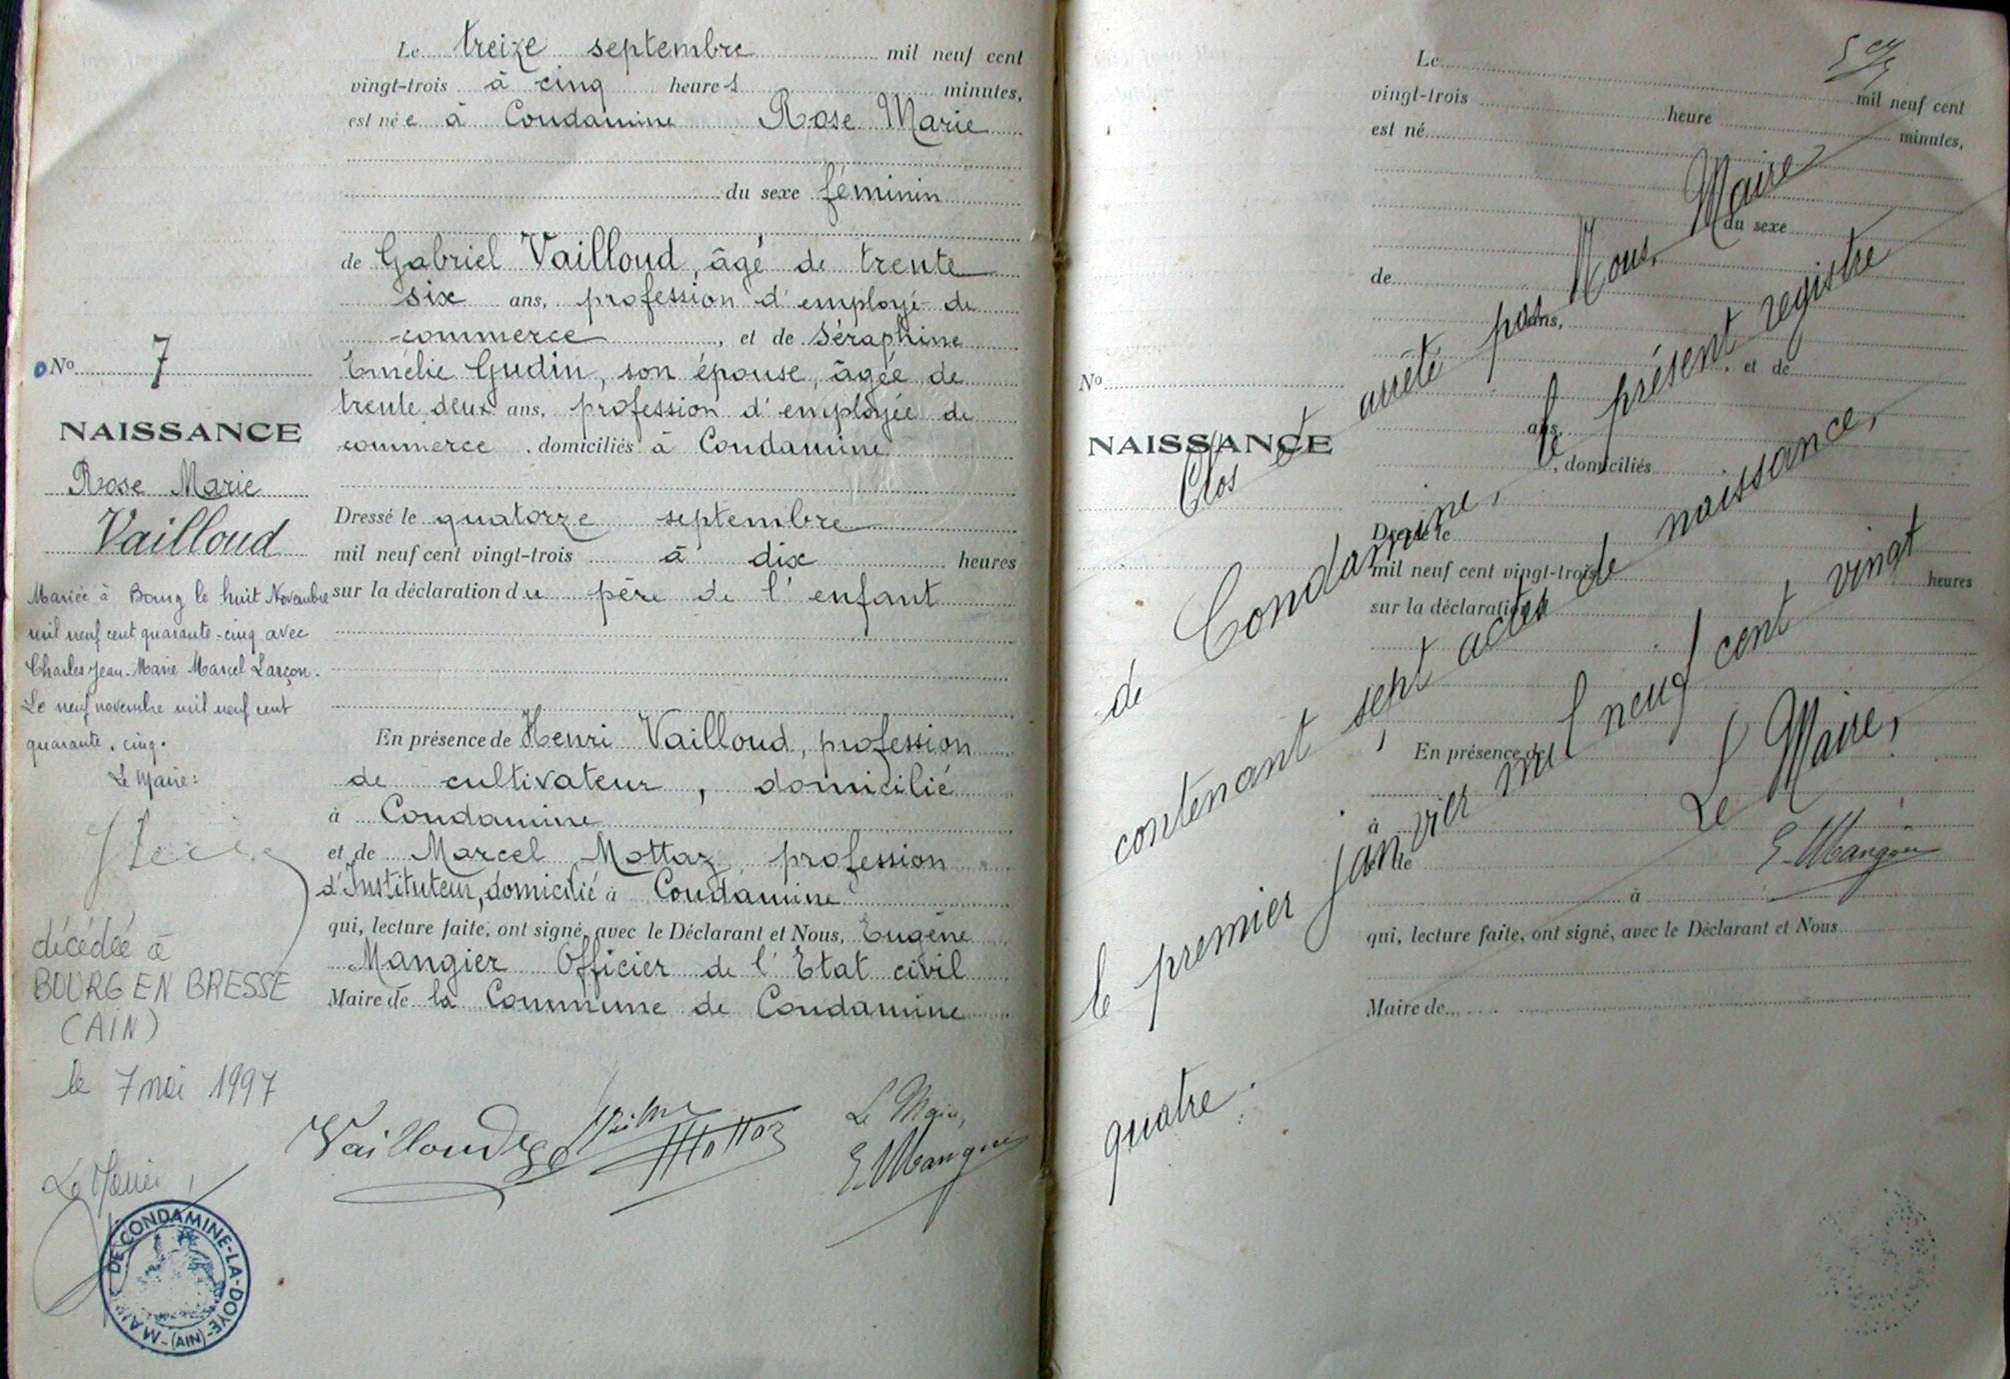 Le treize septembre mil neuf cent
vingt-trois à cinq heures minutes,
est née à Condamine Rose Marie
du sexe féminin
de Gabriel Vailloud, âgé de trente
six ans, profession d'employé de
commerce, et de Séraphine
Emélie Gudin, son épouse, âgée de
trente deux ans, profession d'employée de
commerce, domiciliés à Condamine
Dressé le quatorze septembre
mil neuf cent vingt-trois à dix heures
sur la déclaration du père de l'enfant
En présence de Henri Vailloud, profession
de cultivateur, domicilié
à Condamine
et de Marcel Mottaz profession
d'Instituteur, domicilié à Condamine
qui, lecture faite, ont signé, avec le Déclarant et Nous, Eugène
Mangier Officier de l'Etat civil
Maire de la Commune de Condamine
Vailloud
Mottaz
Le Maire,
E. Mangier
No 7
NAISSANCE
Rose Marie
Vailloud
Mariée à Bourg le huit Novembre
mil neuf cent quarante-cinq avec
Charles Jean-Marie Marcel Larçon.
Le neuf novembre mil neuf cent
quarante-cinq.
Le Maire:
décédée à
BOURG EN BRESSE
(AIN)
le 7 mai 1997
Le Maire,
MAIRIE DE CONDAMINE-LA-DOYE
(AIN)
Le mil neuf cent
vingt-trois heure minutes,
est né
du sexe
de
ans,
et de
ans,
, domiciliés
Dressé le
mil neuf cent vingt-trois heures
sur la déclaration
En présence de
à
et de
à
qui, lecture faite, ont signé, avec le Déclarant et Nous
Maire de
No
NAISSANCE
Clos et arrêté par Nous, Maire
de Condamine, le présent registre
contenant sept actes de naissance,
le premier janvier mil neuf cent vingt
quatre.
Le Maire,
E. Mangier